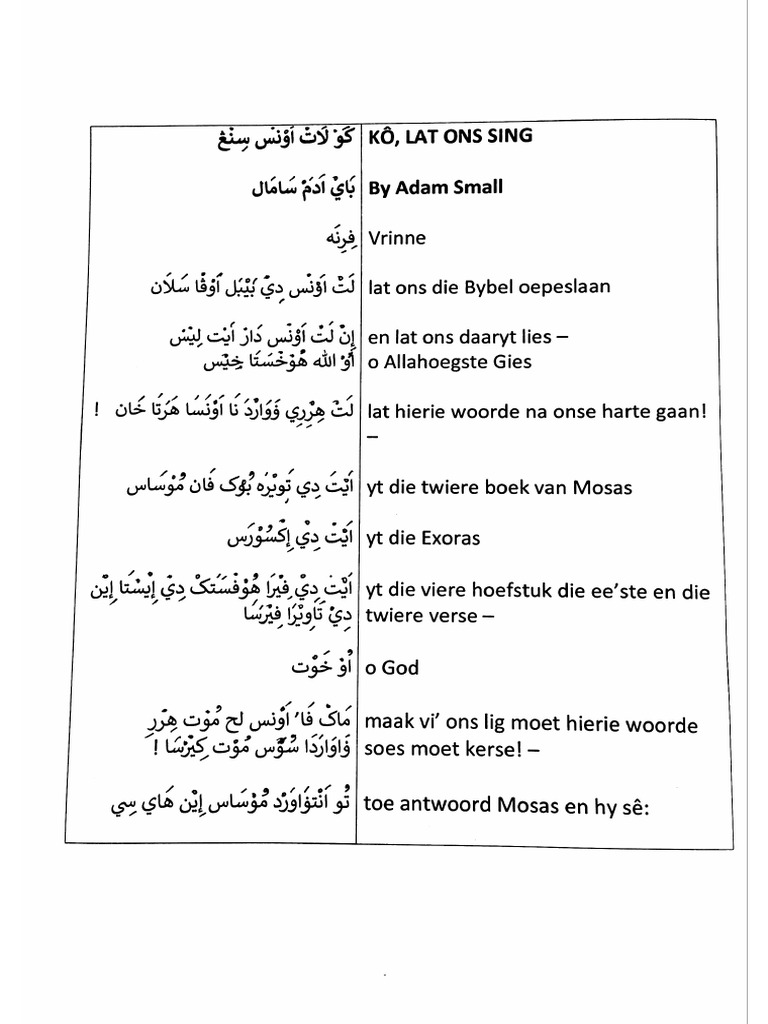 كَوْ لَاتْ اَوْنْسْ سِنْڠْ
KÔ, LAT ONS SING
بَايْ اَدَمْ سَامَال
By Adam Small
فِرِنَه
Vrinne
لَتْ اَوْنْس دِيْ بَيْبَل اَوْفَا سَلَان
lat ons die Bybel oepeslaan
إِنْ لَتْ اَوْنْس دَارْ اَيْت لِيْسْ
en lat ons daaryt lies –
اَوْ الله هُوْخْسَتَا خِيْس
o Allahoegste Gies
لَتْ هِرْرِي وَوَارْدَ نَا اَوْنَسَا هَرْتَا خَان !
lat hierie woorde na onse harte gaan!
–
اَيْتَ دِي تَوِيْرَه بُوْک فَان مُوْسَاس
yt die twiere boek van Mosas
اَيْتْ دِيْ إِکْسُوْرَس
yt die Exoras
اَيْتْ دِيْ فِيْرَا هُوْفْسَتکْ دِيْ إِيْسْتَا إِيْن
yt die viere hoefstuk die ee’ste en die
دِيْ تَاوِيْرَا فِيْرْسَا
twiere verse –
اُوْ خَوْت
o God
مَاکْ فَا’ اَوْنس لح مُوْت هِرْرِ
maak vi’ ons lig moet hierie woorde
وَاوَارَدَا سُوْس مُوْت کِيْرْسَا !
soes moet kerse! –
تُو اَنْتوَاوَرْد مُوْسَاس إِيْن هَاي سِي
toe antwoord Mosas en hy sê: